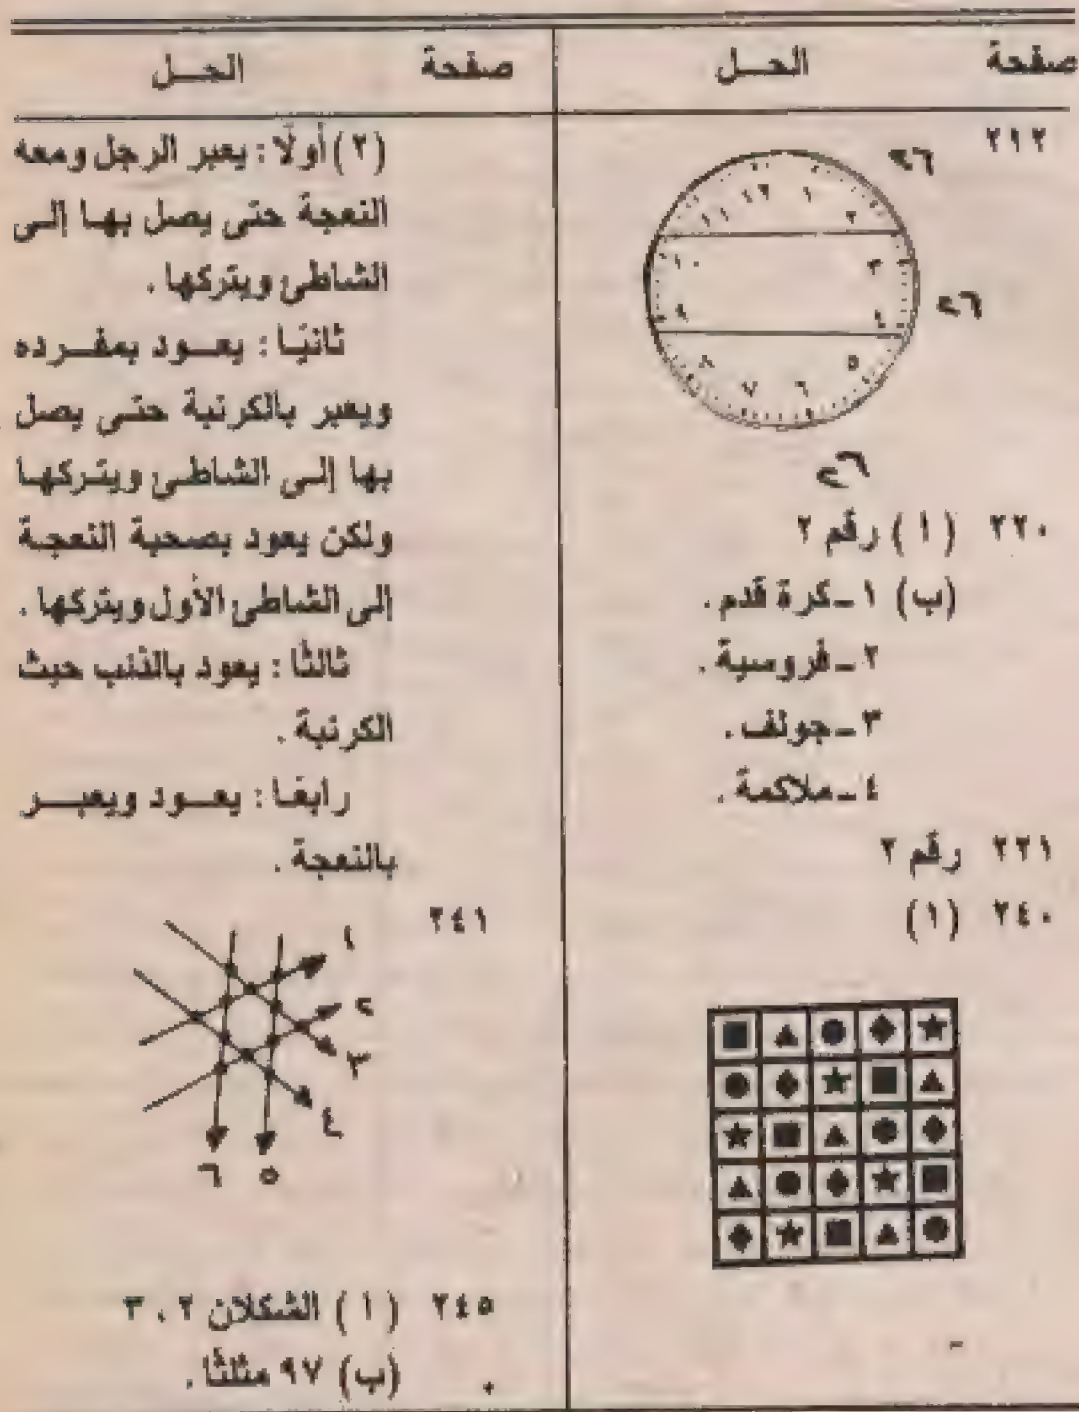 صفحة الحــل
٢١٢
٢٦
١٢ ١
١١ ٢
١٠ ٣
٩ ٤
٨ ٥
٧ ٦
٢٦
٢٦
٢٢٠ (ا) رقم ٢
(ب) ١ـ كرة قدم .
٢ـ فروسية .
٣ـ جولف .
٤ـ ملاكمة .
٢٢١ رقم ٢
٢٤٠ (١)
صفحة الحــل
(٢) أولًا : يعبر الرجل ومعه
النعجة حتى يصل بها إلى
الشاطئ ويتركها .
ثانيًا : يعــود بمفــرده
ويعبر بالكرنبة حتى يصل
بها إلى الشاطئ ويتركها
ولكن يعود بصحبة النعجة
إلى الشاطئ الأول ويتركها .
ثالثًا : يعود بالذئب حيث
الكرنبة .
رابعًا : يعــود ويعبــر
بالنعجة .
٢٤١
١
٢
٣
٤
٦ ٥
٢٤٥ (ا) الشكلان ٢ ، ٣
(ب) ٩٧ مثلثًا .